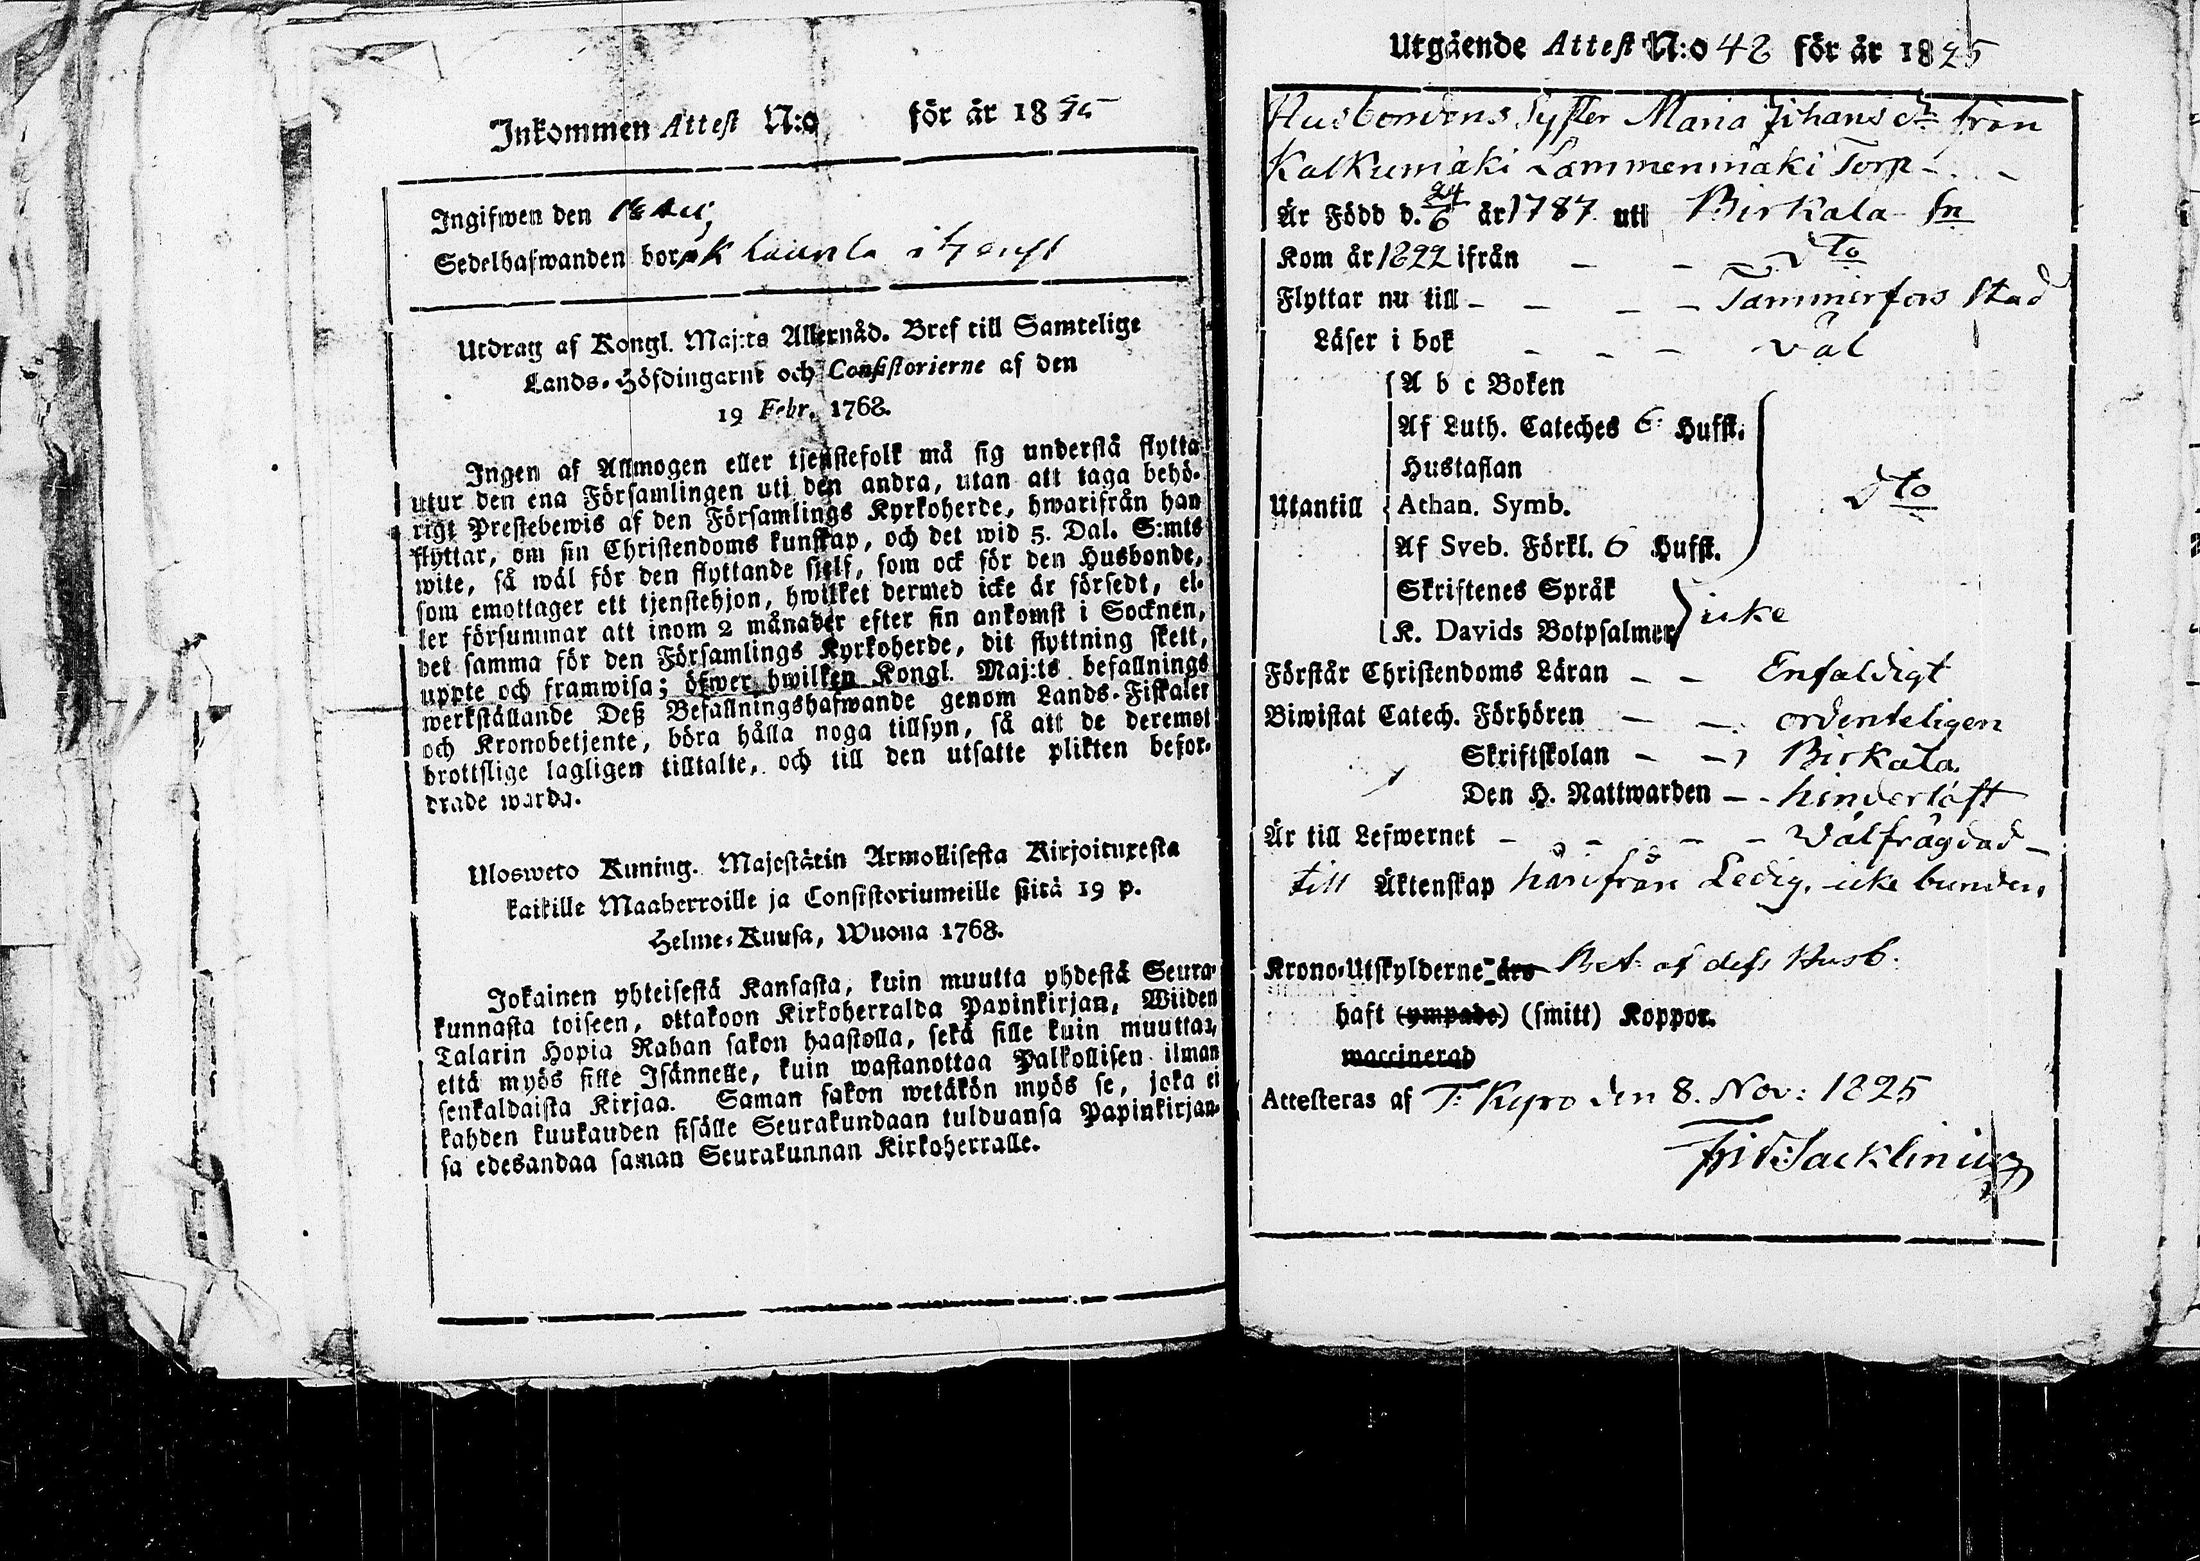 Inkommen Attest N:o för år 1825
Ingifwen den
Sedelhafwanden bor
Utdrag af Kongl. Maj:ts Allernåd. Bref till Samtelige
Lands-Höfdingarne och Consistorierne af den
19 Febr. 1768.
Ingen af Allmogen eller tjenstefolk må sig understå flytta
utur den ena Församlingen uti den andra, utan att taga behö-
rigt Prestebewis af den Församlings Kyrkoherde, hwarifrån han
flyttar, om sin Christendoms kunskap, och det wid 5. Dal. S:mts
wite, så wäl för den flyttande sjelf, som ock för den Husbonde,
som emottager ett tjenstehjon, hwilket dermed icke är försedt, el-
ler försummar att inom 2 månader efter sin ankomst i Socknen,
det samma för den Församlings Kyrkoherde, dit flyttning skett,
uppte och framwisa; öfwer hwilken Kongl. Maj:ts befallnings
werkställande Deß Befallningshafwande genom Lands-Fiskaler
och Kronobetjente, böra hålla noga tillsyn, så att de deremot
brottslige lagligen tilltalte, och till den utsatte plikten befor-
drade warda.
Ulosweto Kuning. Majestätin Armollisesta Kirjoituxesta
kaikille Maaherroille ja Consistoriumeille siitä 19 p.
Helme-Kuusa, Wuona 1768.
Jokainen yhteisestä Kansasta, kuin muutta yhdestä Seura-
kunnasta toiseen, ottakoon Kirkoherralda Papinkirjan, Wiiden
Talarin Hopia Rahan sakon haastolla, sekä sille kuin muuttaa,
että myös sille Isännelle, kuin wastanottaa Palkollisen ilman
senkaldaista Kirjaa. Saman sakon wetäkön myös se, joka ei
kahden kuukauden sisälle Seurakundaan tulduansa Papinkirjan-
sa edesandaa saman Seurakunnan Kirkoherralle.
Utgående Attest N:o 48 för år 1825
Husbondens Syster Maria Johansdr från
Kalkumäki Lammenmäki Torp
Är Född d. 24/6 år 1787 uti Birkala Sn
Kom år 1822 ifrån - - Dto
Flyttar nu till - - - - Tammerfors Stad
Läser i bok - - - väl
A b c Boken
Af Luth. Cateches 6 Hufst.
Hustaflan
Utantill Athan. Symb. Dto
Af Sveb. Förkl. 6 Hufst.
Skriftenes Språk
K. Davids Botpsalmer icke
Förstår Christendoms Läran - - Enfaldigt
Biwistat Catech. Förhören - - ordenteligen
Skriftskolan - - i Birkala
Den H. Nattwarden - - hinderlöst
Är till Lefwernet - - - - - Välfrägdad -
till Äktenskap härifrån Ledig, icke bunden,
Krono-Utskylderne års Bet. af dess Husb.
haft (ympade) (smitt) Koppor.
waccinerad
Attesteras af T: Kyro den 8. Nov: 1825